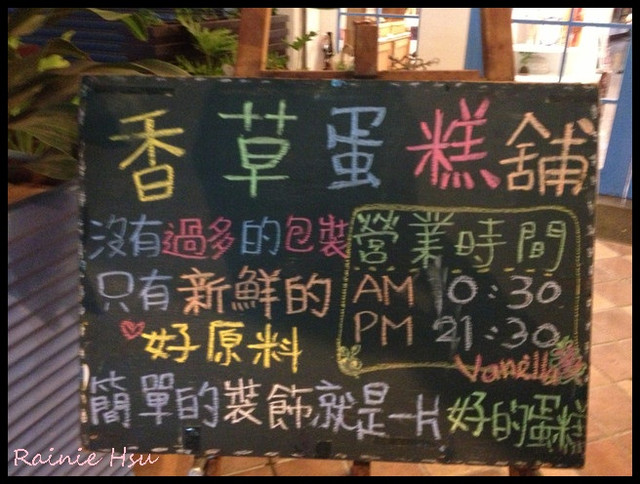 香草蛋糕舖
沒有過多的包裝
只有新鮮的
好原料
營業時間
AM 10:30
PM 21:30
Vanilla
簡單的裝飾就是一片好的蛋糕
Rainie Hsu